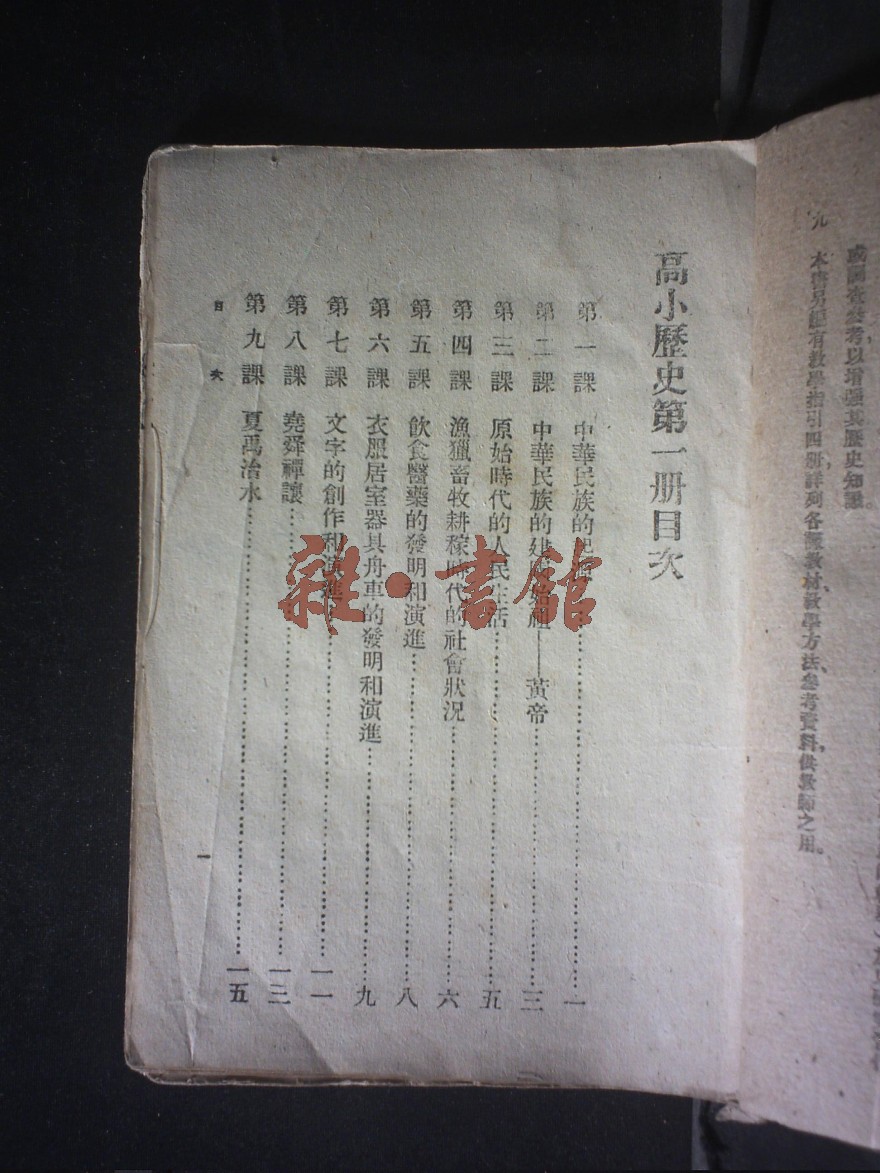 或調查參考以增强其歷史知識。
九 本書另編有教學指引四册,詳列各課教材、教學方法、參考資料,供教師之用。
高小歷史第一册目次
第一課 中華民族的起源……一
第二課 中華民族的建國始祖——黃帝……三
第三課 原始時代的人民生活……五
第四課 漁獵畜牧耕稼時代的社會狀況……六
第五課 飲食醫藥的發明和演進……八
第六課 衣服居室器具舟車的發明和演進……九
第七課 文字的創作和演進……一一
第八課 堯舜禪讓……一三
第九課 夏禹治水……一五
目次
一
雜·書館